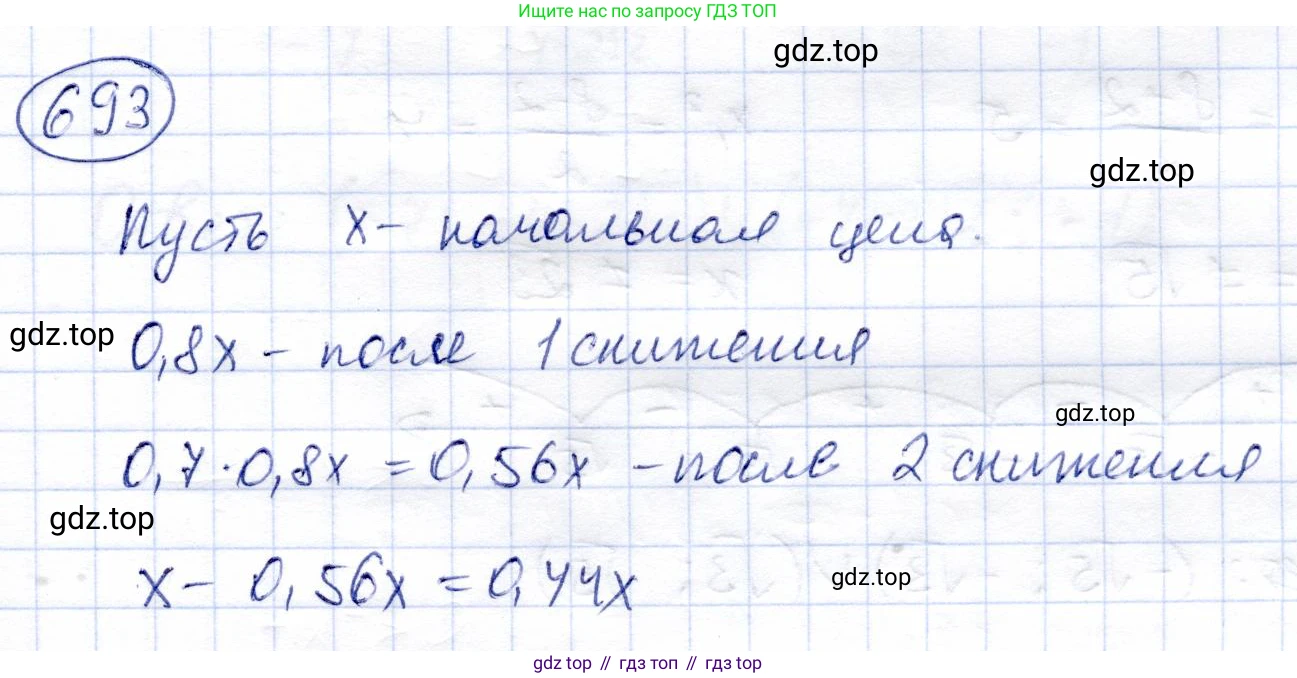 Ищите нас по запросу ГДЗ ТОП
gdz.top
693
gdz.top
Пусть x - начальная цена.
gdz.top
0,8x - после 1 снижения
gdz.top
0,7·0,8x = 0,56x - после 2 снижения
gdz.top
x - 0,56x = 0,44x
gdz.top
gdz top // гдз топ // гдз top